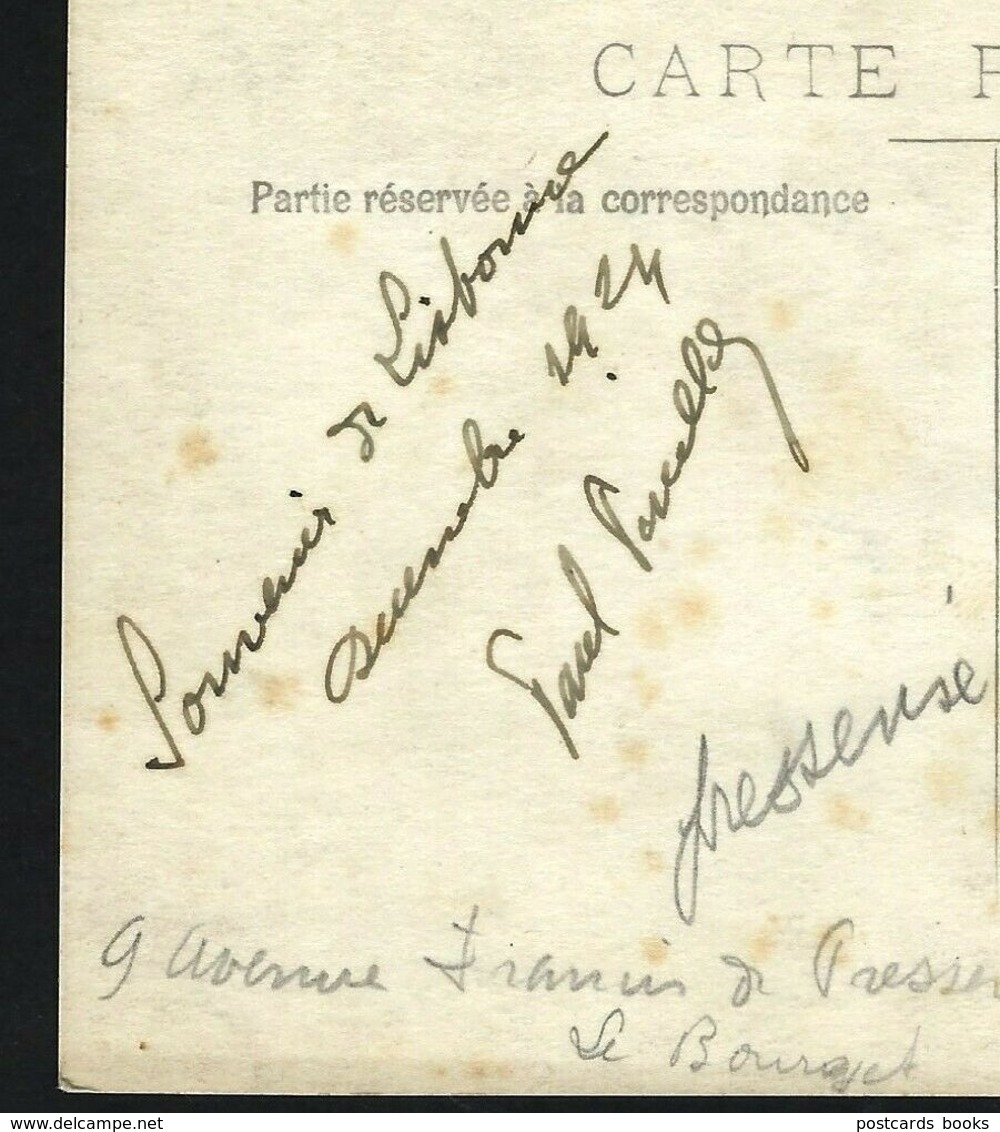 CARTE P
Partie réservée à la correspondance
Souvenir de Lisbonne
Decembre 1924
Paul
pressensé
9 Avenue Francis de Pressen
Le Bourget
www.delcampe.net
postcards books